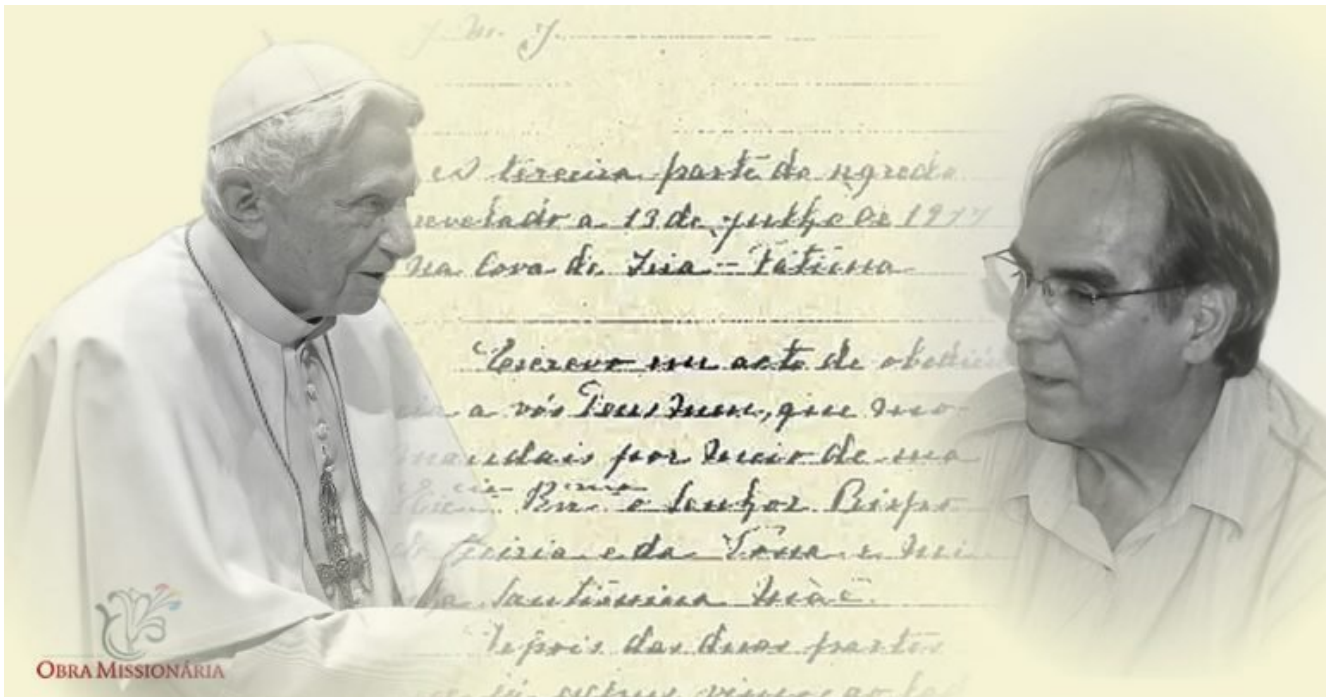 J. M. J.
A terceira parte do segredo
revelado a 13 de julho de 1917
na Cova de Iria – Fátima
Escrevo em acto de obediên
a vós Deus meu, que mo
mandais por meio de sua
Ex.cia Rev.ma o Senhor Bispo
de Leiria e da Vossa e mi
Santíssima Mãe.
Depois das duas partes
já
OBRA MISSIONÁRIA